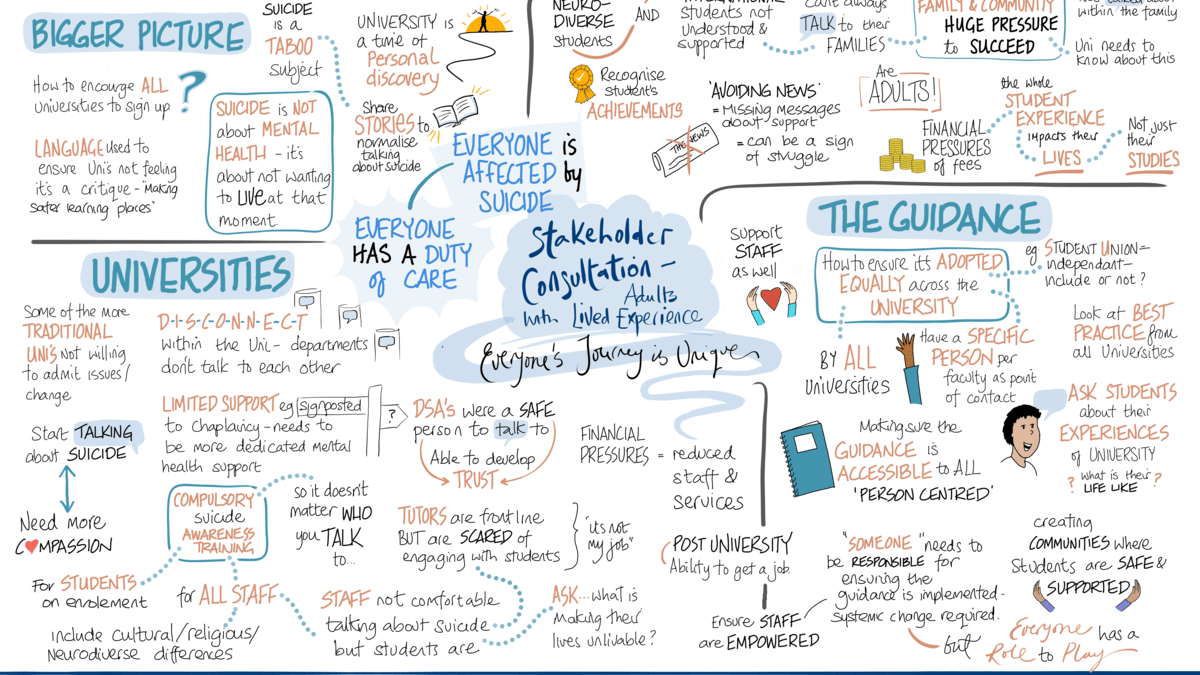 BIGGER PICTURE
How to encourge ALL
universities to sign up
?
LANGUAGE used to
ensure Uni's not feeling
it's a critique - "Making
safer learning places"
SUICIDE
is a
TABOO
subject
SUICIDE is NOT
about MENTAL
HEALTH - it's
about not wanting
to LIVE at that
moment.
UNIVERSITY is
a time of
Personal
discovery
Share
STORIES to
normalise
talking
about suicide
EVERYONE is
AFFECTED by
SUICIDE
EVERYONE
HAS A DUTY
of CARE
Stakeholder
Consultation -
Adults
with Lived Experience
Everyone's Journey is Unique
NEURO-
DIVERSE
students
AND
students not
understood &
supported
can't always
TALK to their
FAMILIES
FAMILY & COMMUNITY
HUGE PRESSURE
to SUCCEED
within the family
Uni needs to
know about this
Recognise
student's
ACHIEVEMENTS
'AVOIDING NEWS'
= Missing messages
about support
= can be a sign
of struggle
THE NEWS
Are
ADULTS!
FINANCIAL
PRESSURES
of fees
the whole
STUDENT
EXPERIENCE
impacts their
LIVES
Not just
their
STUDIES
UNIVERSITIES
Some of the more
TRADITIONAL
UNI's Not willing
to admit issues/
change
D-I-S-C-O-N-N-E-C-T
within the Uni - departments
don't talk to each other
Start TALKING
about SUICIDE
Need more
COMPASSION
LIMITED SUPPORT eg signposted
to Chaplaincy - needs to
be more dedicated mental
health support
?
DSA's were a SAFE
person to talk to
Able to develop
TRUST
FINANCIAL
PRESSURES = reduced
staff &
services
COMPULSORY
suicide
AWARENESS
TRAINING
so it doesn't
matter WHO
you TALK
to...
TUTORS are front line
BUT are SCARED of
engaging with students
"it's not
my job"
POST UNIVERSITY
Ability to get a job
For STUDENTS
on enrolement
for ALL STAFF
include cultural/religious/
Neurodiverse differences
STAFF not comfortable
talking about suicide
but students are
ASK... what is
making their
lives unlivable?
THE GUIDANCE
Support
STAFF
as well
How to ensure it's ADOPTED
EQUALLY across the
UNIVERSITY
eg. STUDENT UNION =
independant -
include or not?
BY ALL
universities
Have a SPECIFIC
PERSON per
faculty as point
of contact
Look at BEST
PRACTICE from
all Universities
Making sure the
GUIDANCE is
ACCESSIBLE to ALL
'PERSON CENTRED'
ASK STUDENTS
about their
EXPERIENCES
of UNIVERSITY
? what is their ?
LIFE LIKE
"SOMEONE" needs to
be RESPONSIBLE for
ensuring the
guidance is implemented -
systemic change required.
Ensure STAFF
are EMPOWERED
creating
COMMUNITIES where
students are SAFE &
SUPPORTED
but Everyone has a
Role to Play